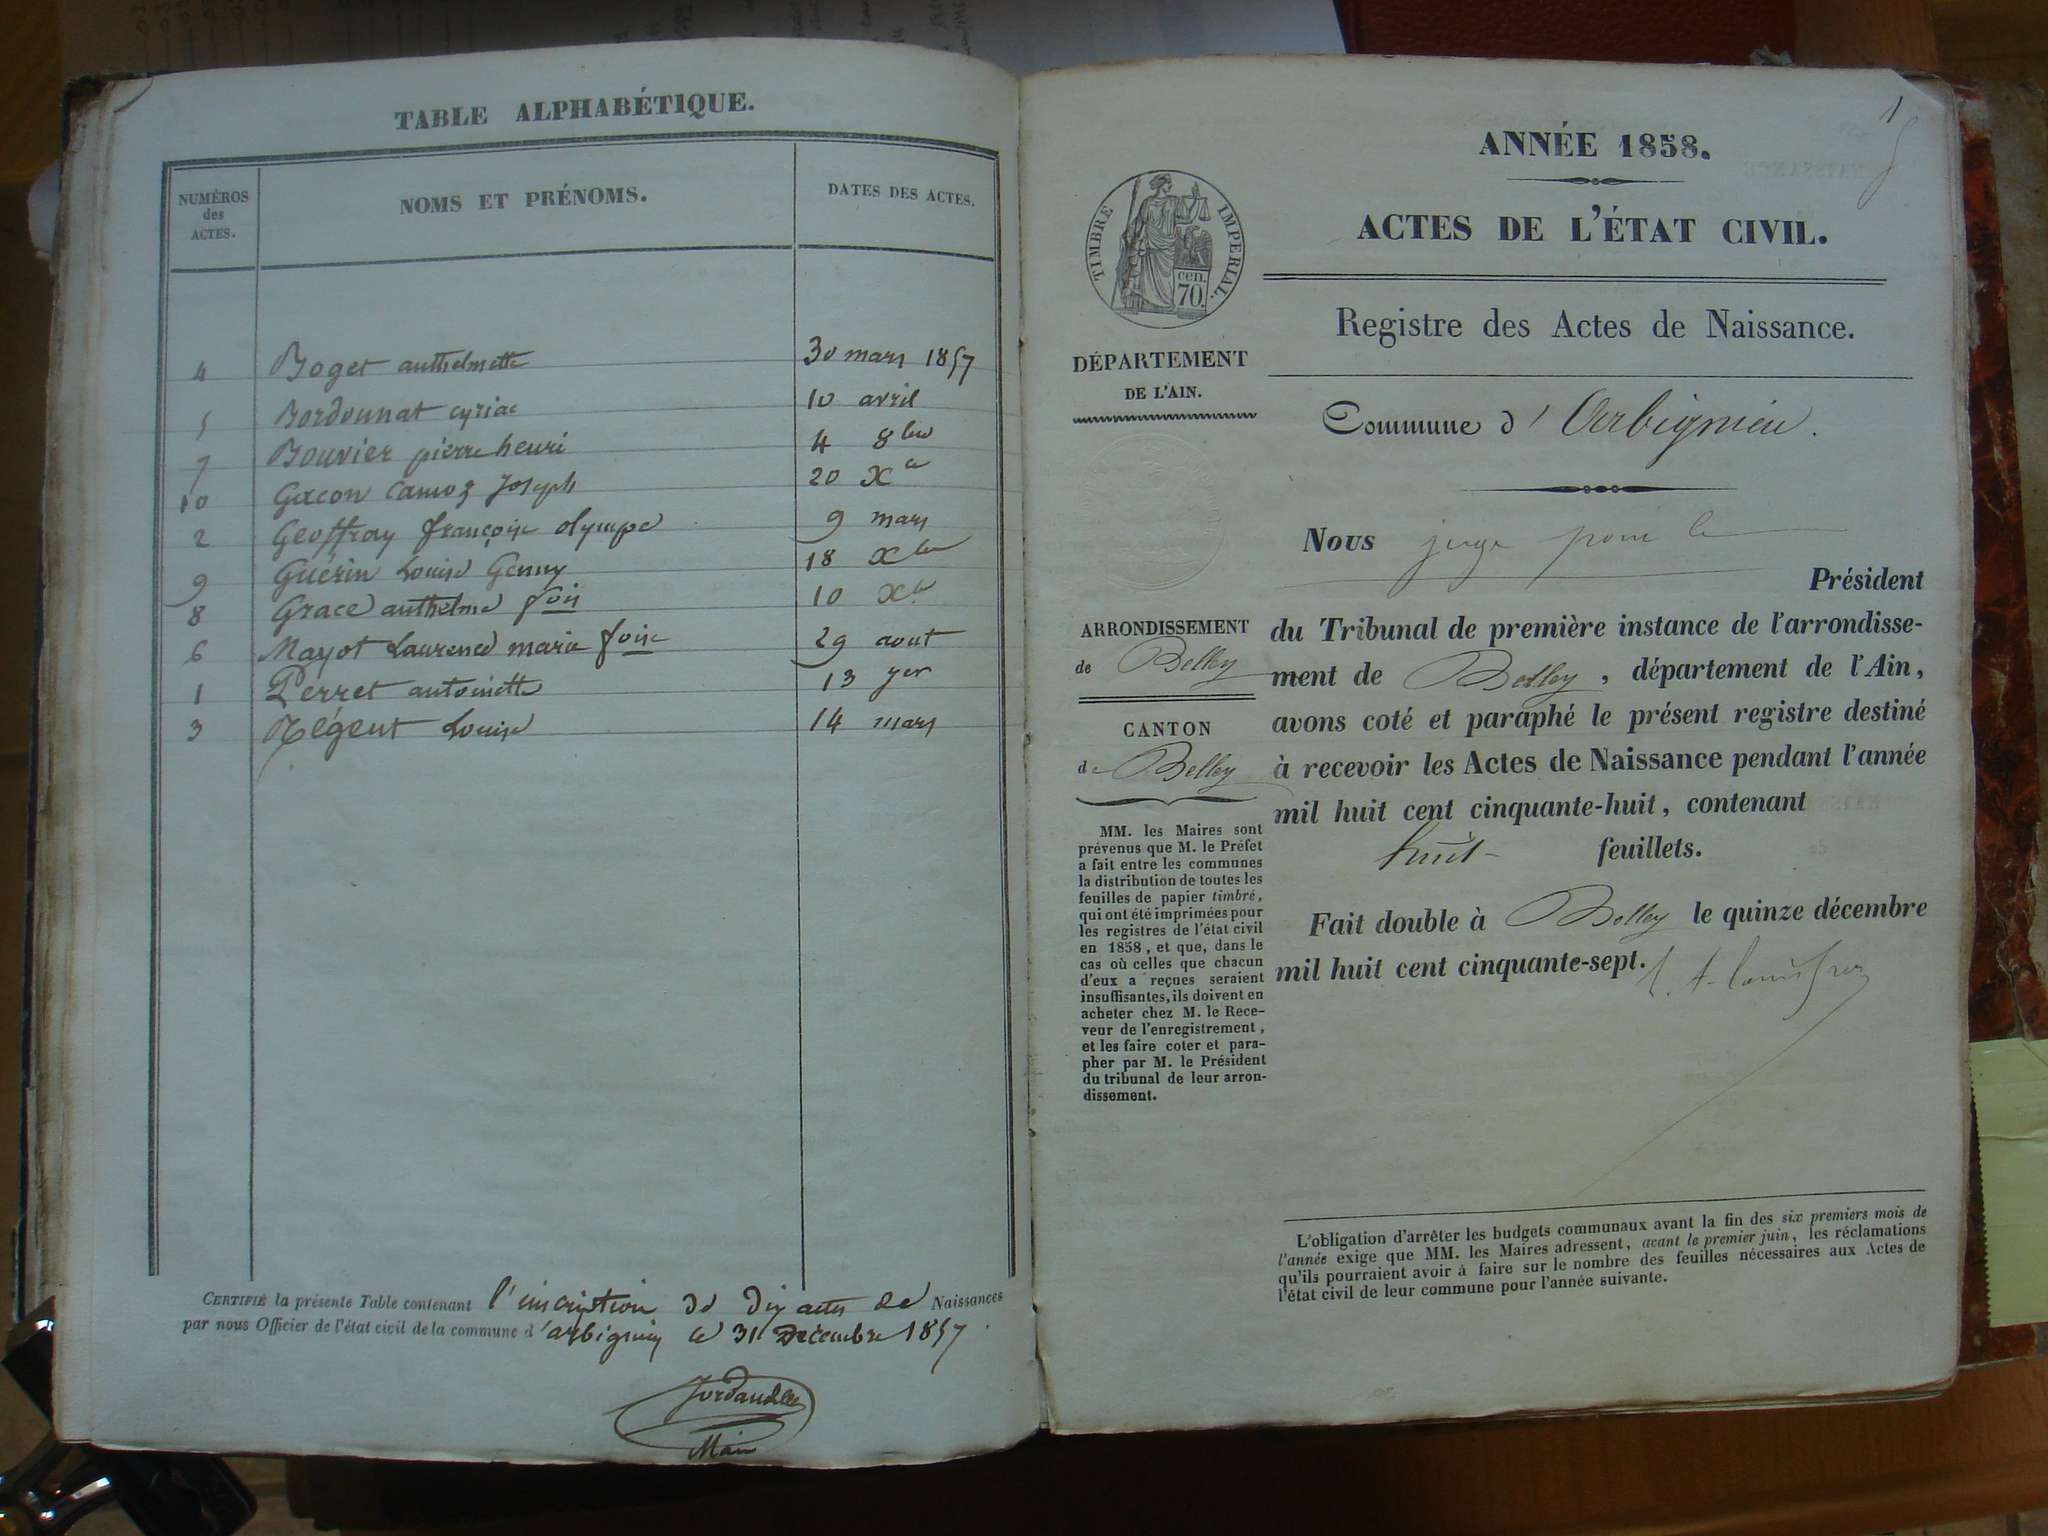 TABLE ALPHABÉTIQUE.
NUMÉROS des ACTES. NOMS ET PRÉNOMS. DATES DES ACTES.
4 Boget anthelmette 30 mars 1857
5 Bordonnat cyriac 10 avril
7 Bouvier pierre henri 4 8bre
10 Gacon Camoz Joseph 20 Xe
2 Geoffray françoise olympe 9 mars
9 Guérin Louise Genny 18 Xbre
8 Grace anthelme fois 10 Xbre
6 Mayot Laurence marie foise 29 aout
1 Perret antoinette 13 yer
3 Régent Louise 14 mars
CERTIFIÉ la présente Table contenant l'inscription de dix actes de Naissances
par nous Officier de l'état civil de la commune d'arbignieu ce 31 Décembre 1857.
Maire
1
ANNÉE 1858.
ACTES DE L'ÉTAT CIVIL.
TIMBRE IMPERIAL.
cen.
70.
Registre des Actes de Naissance.
DÉPARTEMENT
DE L'AIN.
Commune d'Arbignieu.
Nous juge pour le
Président
ARRONDISSEMENT
de Belley
CANTON
de Belley
du Tribunal de première instance de l'arrondisse-
ment de Belley, département de l'Ain,
avons coté et paraphé le présent registre destiné
à recevoir les Actes de Naissance pendant l'année
mil huit cent cinquante-huit, contenant
huit feuillets.
Fait double à Belley le quinze décembre
mil huit cent cinquante-sept.
MM. les Maires sont
prévenus que M. le Préfet
a fait entre les communes
la distribution de toutes les
feuilles de papier timbré,
qui ont été imprimées pour
les registres de l'état civil
en 1858, et que, dans le
cas où celles que chacun
d'eux a reçues seraient
insuffisantes, ils doivent en
acheter chez M. le Rece-
veur de l'enregistrement,
et les faire coter et para-
pher par M. le Président
du tribunal de leur arron-
dissement.
L'obligation d'arrêter les budgets communaux avant la fin des six premiers mois de
l'année exige que MM. les Maires adressent, avant le premier juin, les réclamations
qu'ils pourraient avoir à faire sur le nombre des feuilles nécessaires aux Actes de
l'état civil de leur commune pour l'année suivante.